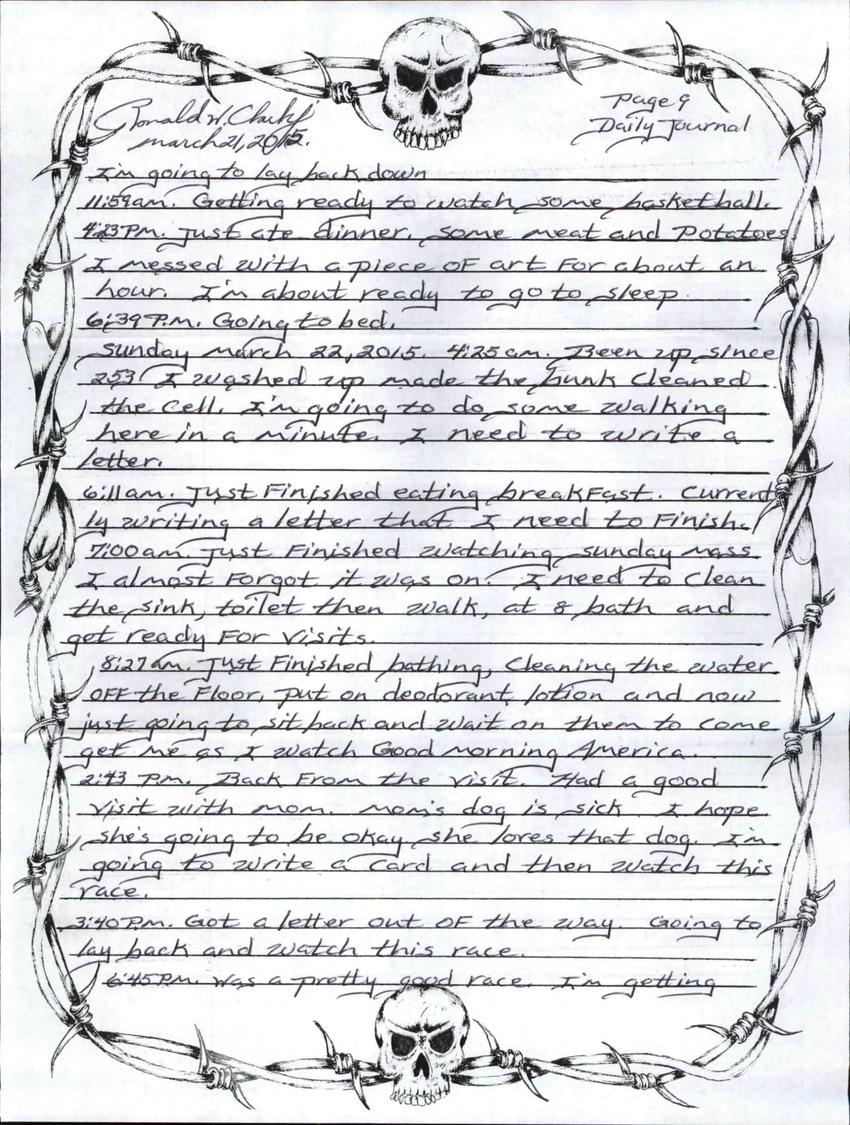 Ronald W. Clark Jr
Page 9
March 21, 2015.
Daily Journal
I'm going to lay back down
11:59am. Getting ready to watch some basketball.
4:23 P.M. Just ate dinner. Some meat and potatoes
I messed with a piece of art for about an
hour. I'm about ready to go to sleep
6:39 P.M. Going to bed.
Sunday March 22, 2015. 4:25 am. Been up since
2:53 I washed up made the bunk cleaned
the cell. I'm going to do some walking
here in a minute. I need to write a
letter.
6:11am. Just finished eating breakfast. Current
ly writing a letter that I need to finish.
7:00am. Just finished watching Sunday Mass
I almost forgot it was on. I need to clean
the sink, toilet then walk, at 8 bath and
get ready for visits.
8:27am. Just finished bathing, cleaning the water
off the floor, put on deodorant, lotion and now
just going to sit back and wait on them to come
get me as I watch Good Morning America.
2:43 P.M. Back from the visit. Had a good
visit with mom. Mom's dog is sick I hope
she's going to be okay she loves that dog. I'm
going to write a card and then watch this
race.
3:40 P.M. Got a letter out of the way. Going to
lay back and watch this race.
6:45 P.M. Was a pretty good race. I'm getting